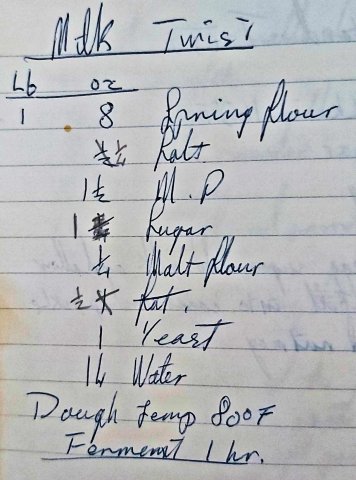 Milk Twist
Lb oz
1 8 Spring flour
1/4 Salt
1 1/2 M.P
1 Sugar
1/4 Malt flour
1/2 Fat.
1 Yeast
14 Water
Dough temp 80oF
Ferment 1 hr.